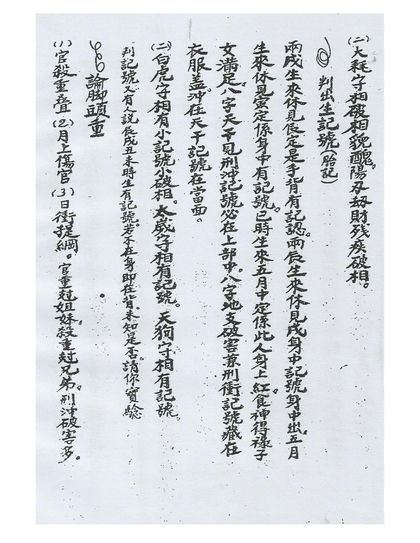 (二)大耗守相破相貌醜。陽刃劫財残疾破相。
判出生記號(胎記)
兩戌生來休見辰定是手背有記認。兩辰生來休見戌身中記號身中出。五月
生來休見寅定係身中有記號。巳時生來五月中定係此人身上紅。食神得祿子
女滿足。八字天干見刑沖記號必在上部中。八字地支破害兼刑衝記號藏在
衣服盖沖在天干記號在當面。
(二)白虎守相有小記號小破相。太歲守相有記號。天狗守相有記號。
判記號又有人說辰戌丑未時生有記號若不在身即在背未知是否請你實驗
論脚頭重
(1)官殺重叠(2)月上傷官(3)日衝提綱。官重尅姐妹。殺重尅兄弟。刑沖破害多。